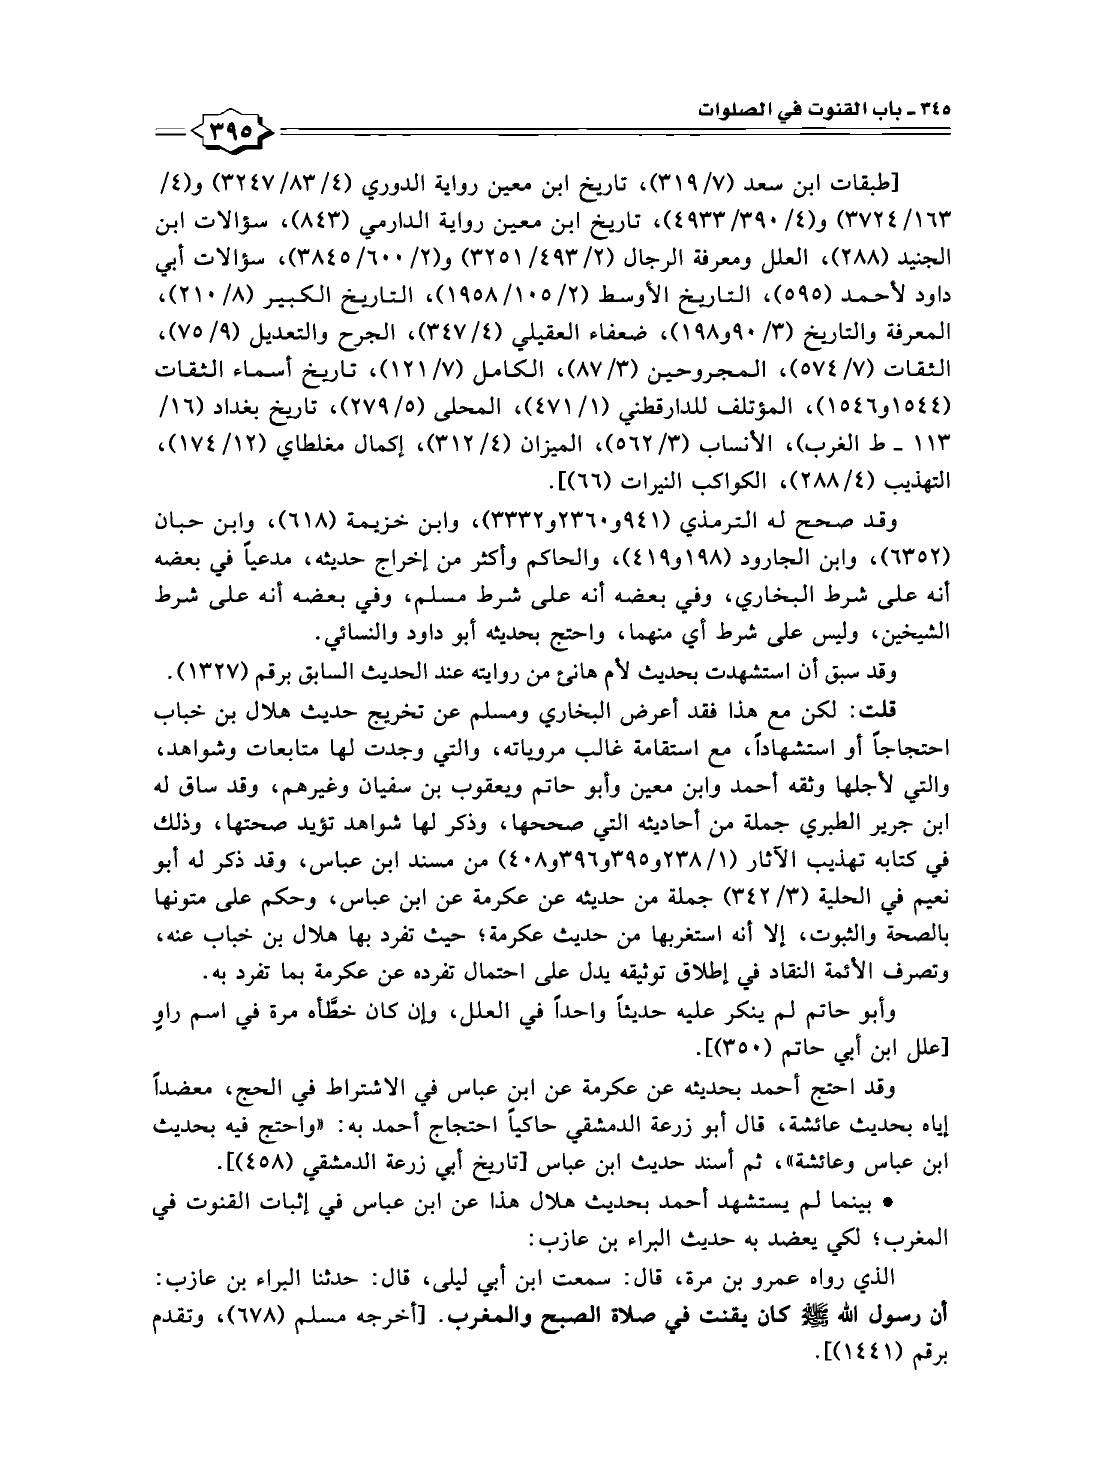 ٣٤٥ ـ باب القنوت في الصلوات
٣٩٥
[طبقات ابن سعد (٣١٩/٧)، تاريخ ابن معين رواية الدوري (٣٢٤٧/٨٣/٤) و(٤/
٣٧٢٤/١٦٣) و(٤٩٣٣/٣٩٠/٤)، تاريخ ابن معين رواية الدارمي (٨٤٣)، سؤالات ابن
الجنيد (٢٨٨)، العلل ومعرفة الرجال (٣٢٥١/٤٩٣/٢) و(٣٨٤٥/٦٠٠/٢)، سؤالات أبي
داود لأحمد (٥٩٥)، التاريخ الأوسط (١٩٥٨/١٠٥/٢)، التاريخ الكبير (٢١٠/٨)،
المعرفة والتاريخ (٩٠/٣و١٩٨)، ضعفاء العقيلي (٣٤٧/٤)، الجرح والتعديل (٧٥/٩)،
الثقات (٥٧٤/٧)، المجروحين (٨٧/٣)، الكامل (١٢١/٧)، تاريخ أسماء الثقات
(١٥٤٤و١٥٤٦)، المؤتلف للدارقطني (٤٧١/١)، المحلى (٢٧٩/٥)، تاريخ بغداد (١٦/
١١٣ ـ ط الغرب)، الأنساب (٥٦٢/٣)، الميزان (٣١٢/٤)، إكمال مغلطاي (١٧٤/١٢)،
التهذيب (٢٨٨/٤)، الكواكب النيرات (٦٦)].
وقد صحح له الترمذي (٩٤١و٢٣٦٠و٣٣٣٢)، وابن خزيمة (٦١٨)، وابن حبان
(٦٣٥٢)، وابن الجارود (١٩٨و٤١٩)، والحاكم وأكثر من إخراج حديثه، مدعياً في بعضه
أنه على شرط البخاري، وفي بعضه أنه على شرط مسلم، وفي بعضه أنه على شرط
الشيخين، وليس على شرط أي منهما، واحتج بحديثه أبو داود والنسائي.
وقد سبق أن استشهدت بحديث لأم هانئ من روايته عند الحديث السابق برقم (١٣٢٧).
قلت: لكن مع هذا فقد أعرض البخاري ومسلم عن تخريج حديث هلال بن خباب
احتجاجاً أو استشهاداً، مع استقامة غالب مروياته، والتي وجدت لها متابعات وشواهد،
والتي لأجلها وثقه أحمد وابن معين وأبو حاتم ويعقوب بن سفيان وغيرهم، وقد ساق له
ابن جرير الطبري جملة من أحاديثه التي صححها، وذكر لها شواهد تؤيد صحتها، وذلك
في كتابه تهذيب الآثار (٢٣٨/١و٣٩٥و٣٩٦و٤٠٨) من مسند ابن عباس، وقد ذكر له أبو
نعيم في الحلية (٣٤٢/٣) جملة من حديثه عن عكرمة عن ابن عباس، وحكم على متونها
بالصحة والثبوت، إلا أنه استغربها من حديث عكرمة؛ حيث تفرد بها هلال بن خباب عنه،
وتصرف الأئمة النقاد في إطلاق توثيقه يدل على احتمال تفرده عن عكرمة بما تفرد به.
وأبو حاتم لم ينكر عليه حديثاً واحداً في العلل، وإن كان خطَّأه مرة في اسم راوٍ
[علل ابن أبي حاتم (٣٥٠)].
وقد احتج أحمد بحديثه عن عكرمة عن ابن عباس في الاشتراط في الحج، معضداً
إياه بحديث عائشة، قال أبو زرعة الدمشقي حاكياً احتجاج أحمد به: «واحتج فيه بحديث
ابن عباس وعائشة»، ثم أسند حديث ابن عباس [تاريخ أبي زرعة الدمشقي (٤٥٨)].
● بينما لم يستشهد أحمد بحديث هلال هذا عن ابن عباس في إثبات القنوت في
المغرب؛ لكي يعضد به حديث البراء بن عازب:
الذي رواه عمرو بن مرة، قال: سمعت ابن أبي ليلى، قال: حدثنا البراء بن عازب:
أن رسول الله ﷺ كان يقنت في صلاة الصبح والمغرب. [أخرجه مسلم (٦٧٨)، وتقدم
برقم (١٤٤١)].